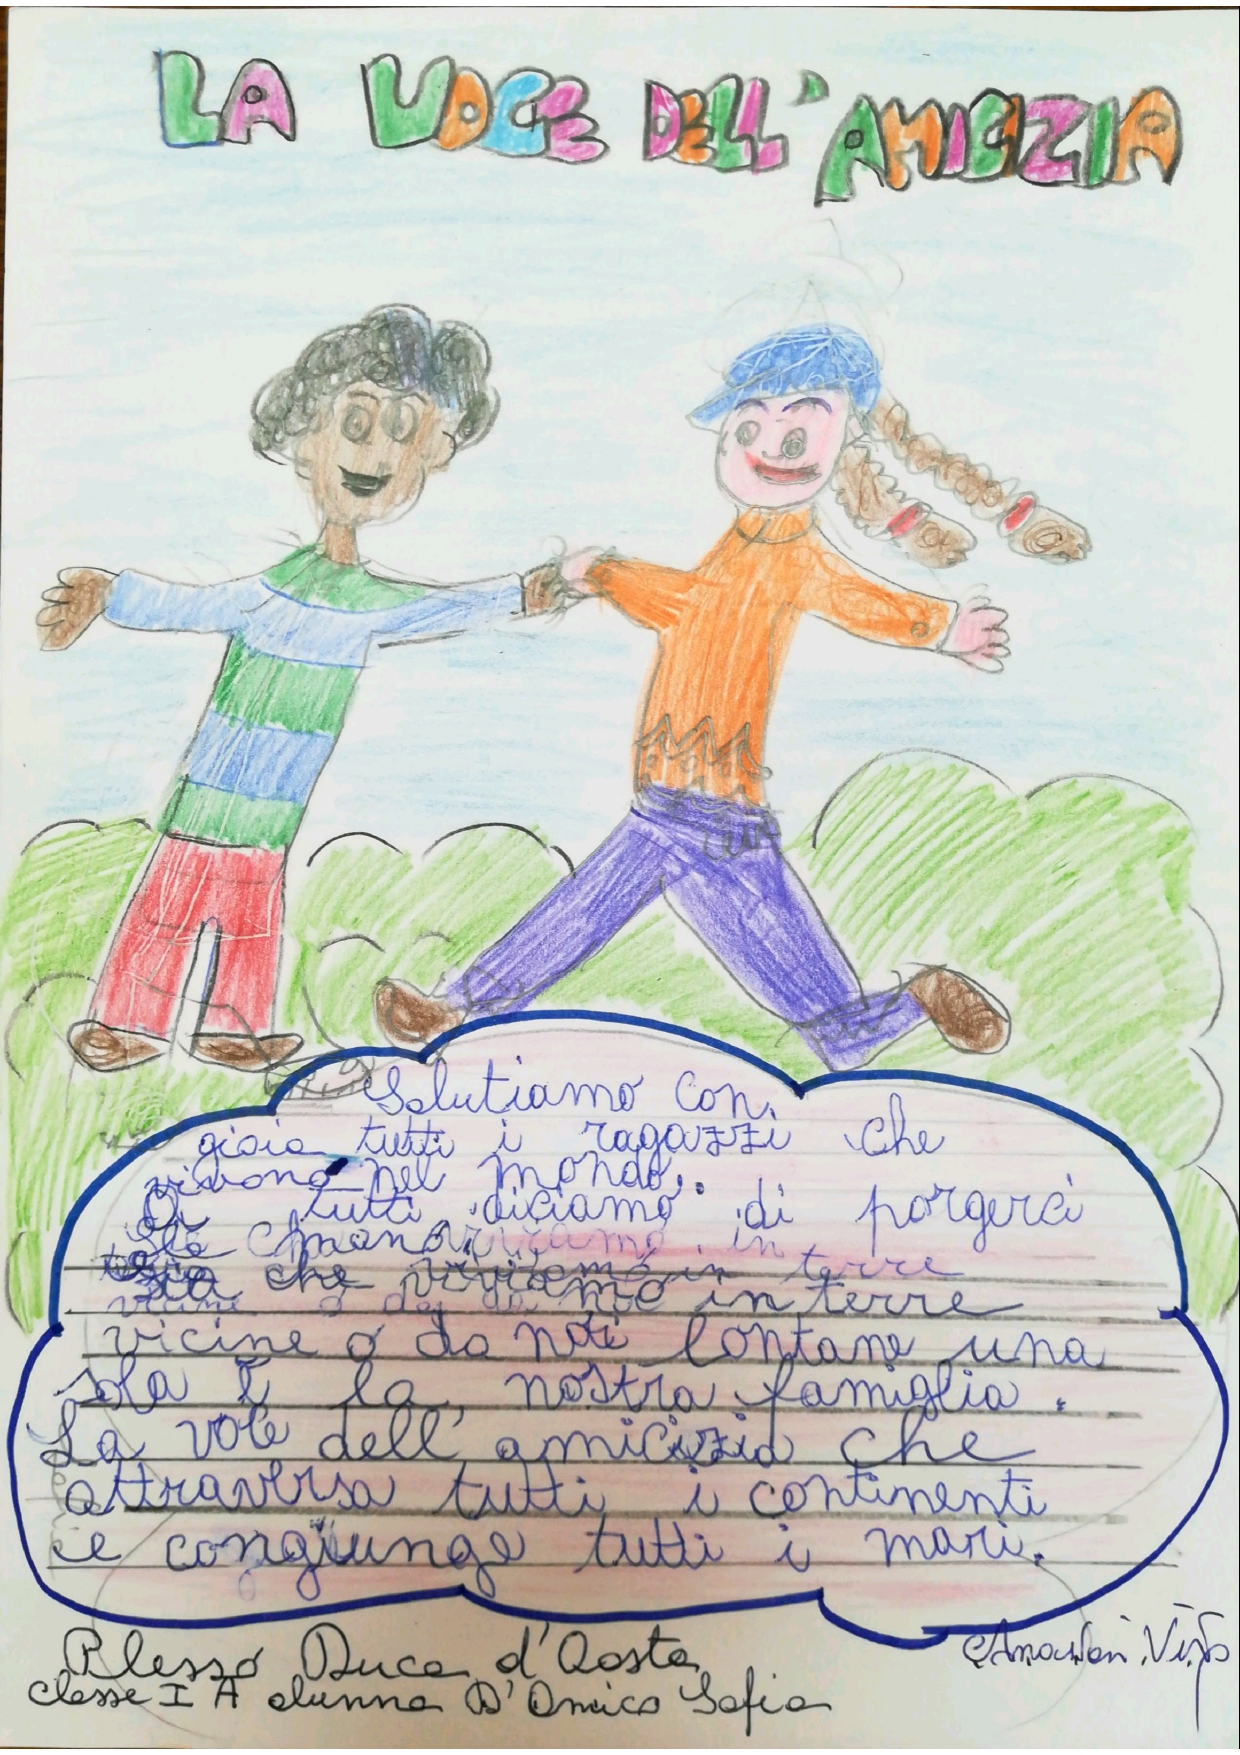 LA VOCE DELL'AMICIZIA
Salutiamo con
gioia tutti i ragazzi che
vivono nel mondo.
tutti diciamo di porgerci
viviamo in
che viviamo in terre
vicine o da noi lontane una
sola è la nostra famiglia.
La voce dell'amicizia che
attraversa tutti i continenti
e congiunge tutti i mari.
Plesso Duca d'Aosta
classe I A alunna D'Amico Sofia